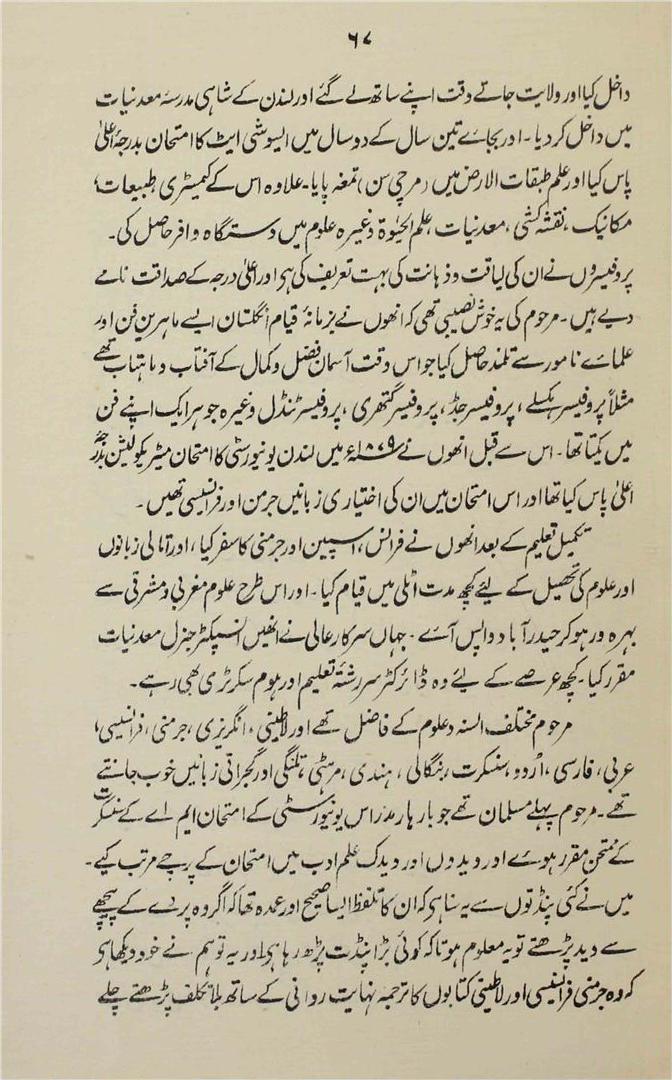 ۶۷
داخل کیا اور ولایت جاتے وقت اپنے ساتھ لے گئے اور لندن کے شاہی مدرسۂ معدنیات
میں داخل کر دیا۔ اور بجائے تین سال کے دو سال میں ایسوشی ایٹ کا امتحان بدرجۂ اعلیٰ
پاس کیا اور علم طبقات الارض میں (مرچی سن) تمغہ پایا۔ علاوہ اس کے کیمسٹری، طبیعات،
مکانیک، نقشہ کشی، معدنیات، علم الحیٰوۃ وغیرہ علوم میں دستگاہ وافر حاصل کی۔
پروفیسروں نے ان کی لیاقت و ذہانت کی بہت تعریف کی ہی اور اعلیٰ درجہ کے صداقت نامے
دیے ہیں۔ مرحوم کی یہ خوش نصیبی تھی کہ انھوں نے بزمانۂ قیام انگلستان ایسے ماہرین فن اور
علمائے نامور سے تلمذ حاصل کیا جو اس وقت آسمان فضل و کمال کے آفتاب و ماہتاب تھے
مثلاً پروفیسر ہکسلے، پروفیسر جڈ، پروفیسر گتھری، پروفیسر ٹنڈل وغیرہ جو ہر ایک اپنے فن
میں یکتا تھا۔ اس سے قبل انھوں نے ۱۸۷۹ء میں لندن یونیورسٹی کا امتحان میٹریکولیشن بدرجۂ
اعلیٰ پاس کیا تھا اور اس امتحان میں ان کی اختیاری زبانیں جرمن اور فرانسیسی تھیں۔
تکمیل تعلیم کے بعد انھوں نے فرانس، اسپین اور جرمنی کا سفر کیا، اور اہالی زبانوں
اور علوم کی تحصیل کے لیئے کچھ مدت اٹلی میں قیام کیا۔ اور اس طرح علوم مغربی و مشرقی سے
بہرہ ور ہو کر حیدرآباد واپس آئے۔ جہاں سرکار عالی نے انھیں انسپکٹر جنرل معدنیات
مقرر کیا۔ کچھ عرصے کے لیے وہ ڈائرکٹر سررشتۂ تعلیم اور ہوم سکرٹری بھی رہے۔
مرحوم مختلف السنہ و علوم کے فاضل تھے اور لاطینی، انگریزی، جرمنی، فرانسیسی،
عربی، فارسی، اُردو، سنسکرت، بنگالی، ہندی، مرہٹی، تلنگی اور گجراتی زبانیں خوب جانتے
تھے۔ مرحوم پہلے مسلمان تھے جو بارہا مدراس یونیورسٹی کے امتحان ایم اے کے سنسکرت
کے ممتحن مقرر ہوئے اور ویدوں اور ویدک علم ادب میں امتحان کے پرچے مرتب کیے۔
میں نے کئی پنڈتوں سے یہ سنا ہی کہ ان کا تلفظ ایسا صحیح اور عمدہ تھا کہ اگر وہ پردے کے پیچھے
سے وید پڑھتے تو یہ معلوم ہوتا کہ کوئی بڑا پنڈت پڑھ رہا ہی اور یہ تو ہم نے خود دیکھا ہی
کہ وہ جرمنی فرانسیسی اور لاطینی کتابوں کا ترجمہ نہایت روانی کے ساتھ بلا تکلف پڑھتے چلے